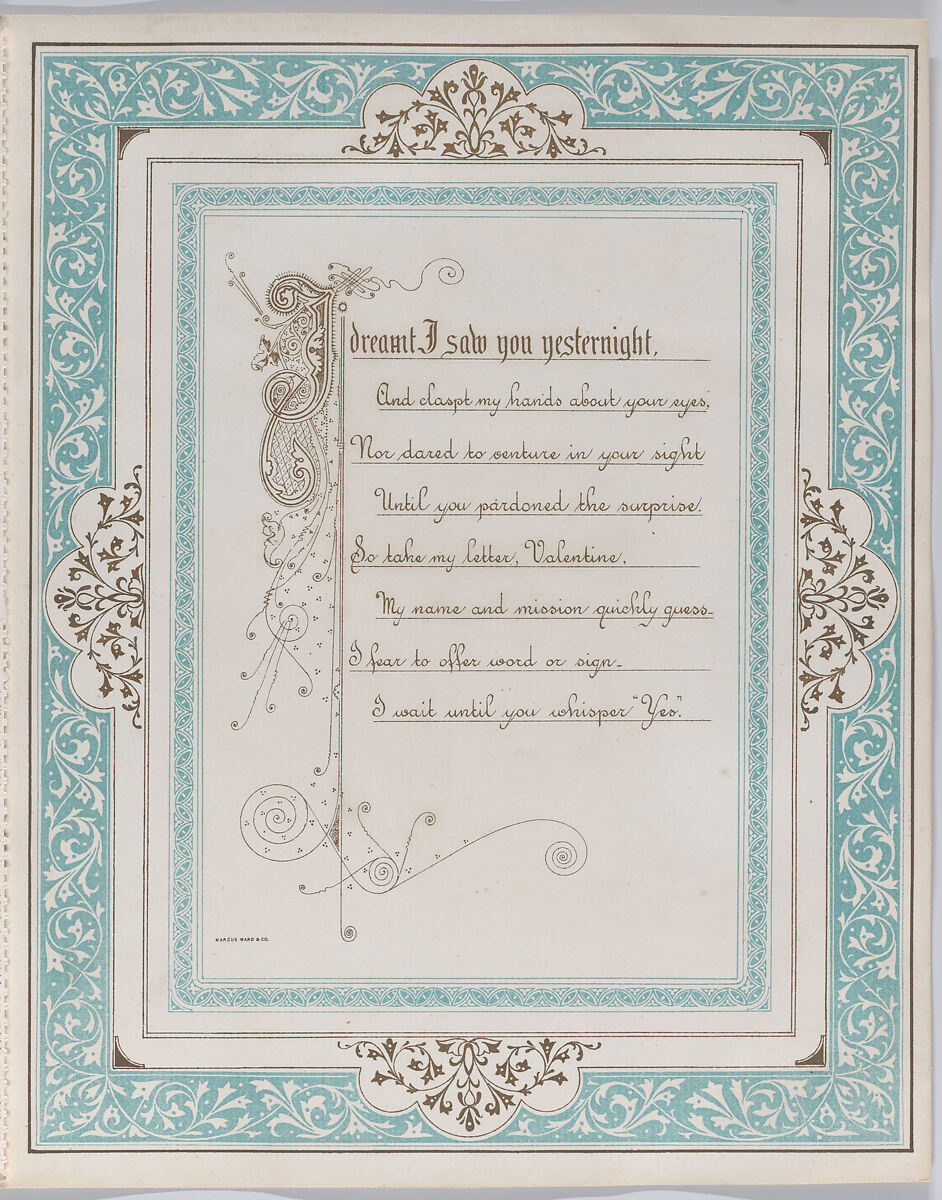 I dreamt I saw you yesternight,
And claspt my hands about your eyes;
Nor dared to venture in your sight
Until you pardoned the surprise.
So take my letter, Valentine,
My name and mission quickly guess—
I fear to offer word or sign—
I wait until you whisper "Yes".
MARCUS WARD & CO.